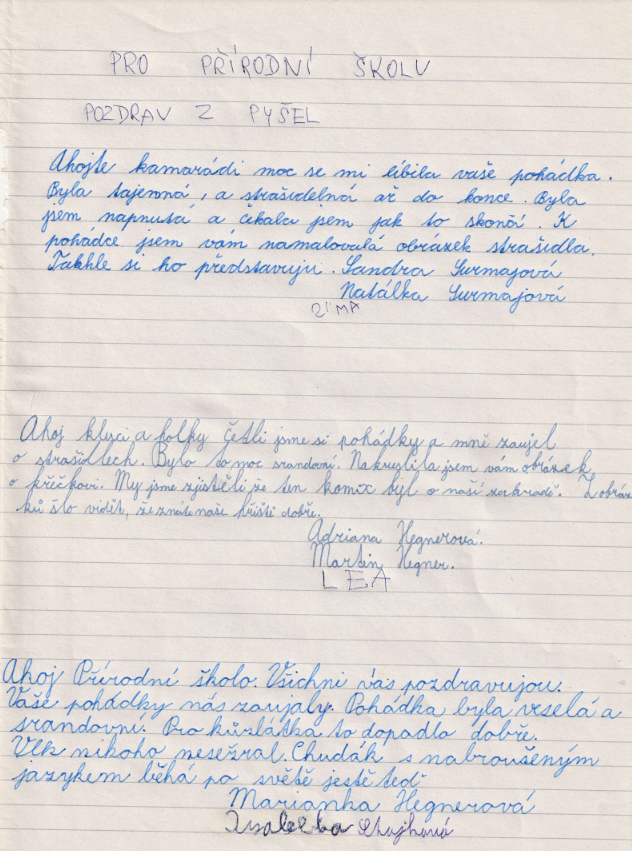 PRO PŘÍRODNÍ ŠKOLU
POZDRAV Z PYŠEL
Ahojte kamarádi moc se mi líbila vaše pohádka.
Byla tajemná, a strašidelná až do konce. Byla
jsem napnutá a čekala jsem jak to skončí. K
pohádce jsem vám namalovala obrázek strašidla.
Takhle si ho představuju. Sandra Surmajová
Natálka Surmajová
Ahoj kluci a holky četli jsme si pohádky a mně zaujel
o strašidlech. Bylo to moc srandovní. Nakreslila jsem vám obrázek
o křečkovi. My jsme zjistěli že ten komix byl o naší zahradě. Z obráz
ků šlo vidět, že znáte naše hřiště dobře.
Adriana Hegnerová.
Martin Hegner.
LEA
Ahoj Přírodní školo. Všichni vás pozdravujou.
Vaše pohádky nás zaujaly. Pohádka byla veselá a
srandovní. Pro kůzlátka to dopadlo dobře.
Vlk nikoho nesežral. Chudák s nabroušeným
jazykem běhá po světě ještě teď.
Marianka Hegnerová